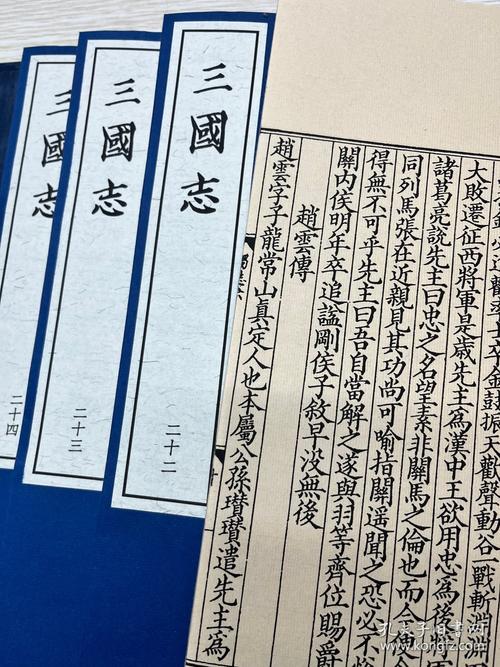 三國志
二十二
三國志
二十三
三國志
二十四
金鼓振天歡聲動谷一戰斬淵淵
大敗遷征西將軍是歲先主爲漢中王欲用忠爲後
諸葛亮說先主曰忠之名望素非關馬之倫也而今
同列馬張在近親見其功尚可喻指關遙聞之恐必不
得無不可乎先主曰吾自當解之遂與羽等齊位賜爵
關内侯明年卒追謚剛侯子敘早没無後
趙雲傳
趙雲字子龍常山真定人也本屬公孫瓚瓚遣先主爲
孔夫子旧书网
www.kongfz.com